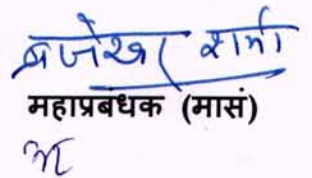 ब्रजेश्वर शर्मा
महाप्रबंधक (मासं)